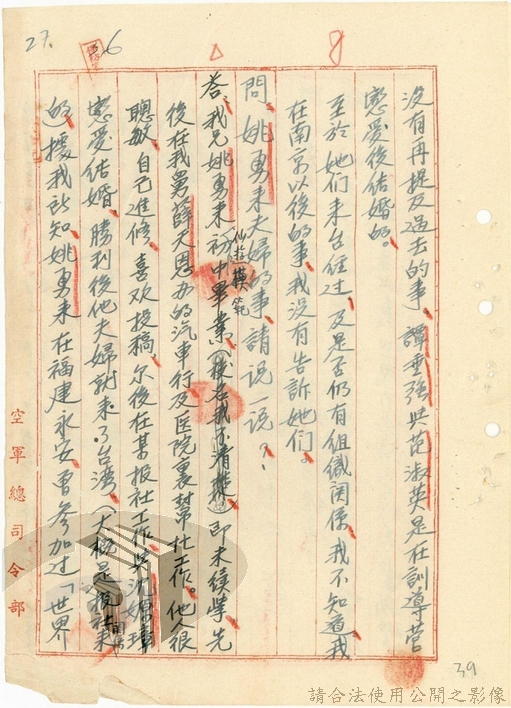 27.
6
8
沒有再提及過去的事、譚重強與范淑英是在訓導营
戀愛後结婚的。
至於她们来台经过、及是否仍有组織関係、我不知道、我
在南京以後的事、我没有告訴她们。
問、姚勇来夫婦的事、請说一说？
答、我兄姚勇来初中畢業、(校名我不清楚)即未续學、先
仙游模范
後在我舅薛天恩办的汽車行及医院裏幫忙工作。他人很
聰敏、自己進修、喜欢投稿、尔後在某报社工作、與沈嫄璋
戀爱结婚、勝利後他夫婦就来了台湾、(大概是
的)據我所知、姚勇来在福建永安、曾参加过「世界
空軍總司令部
39
請合法使用公開之影像